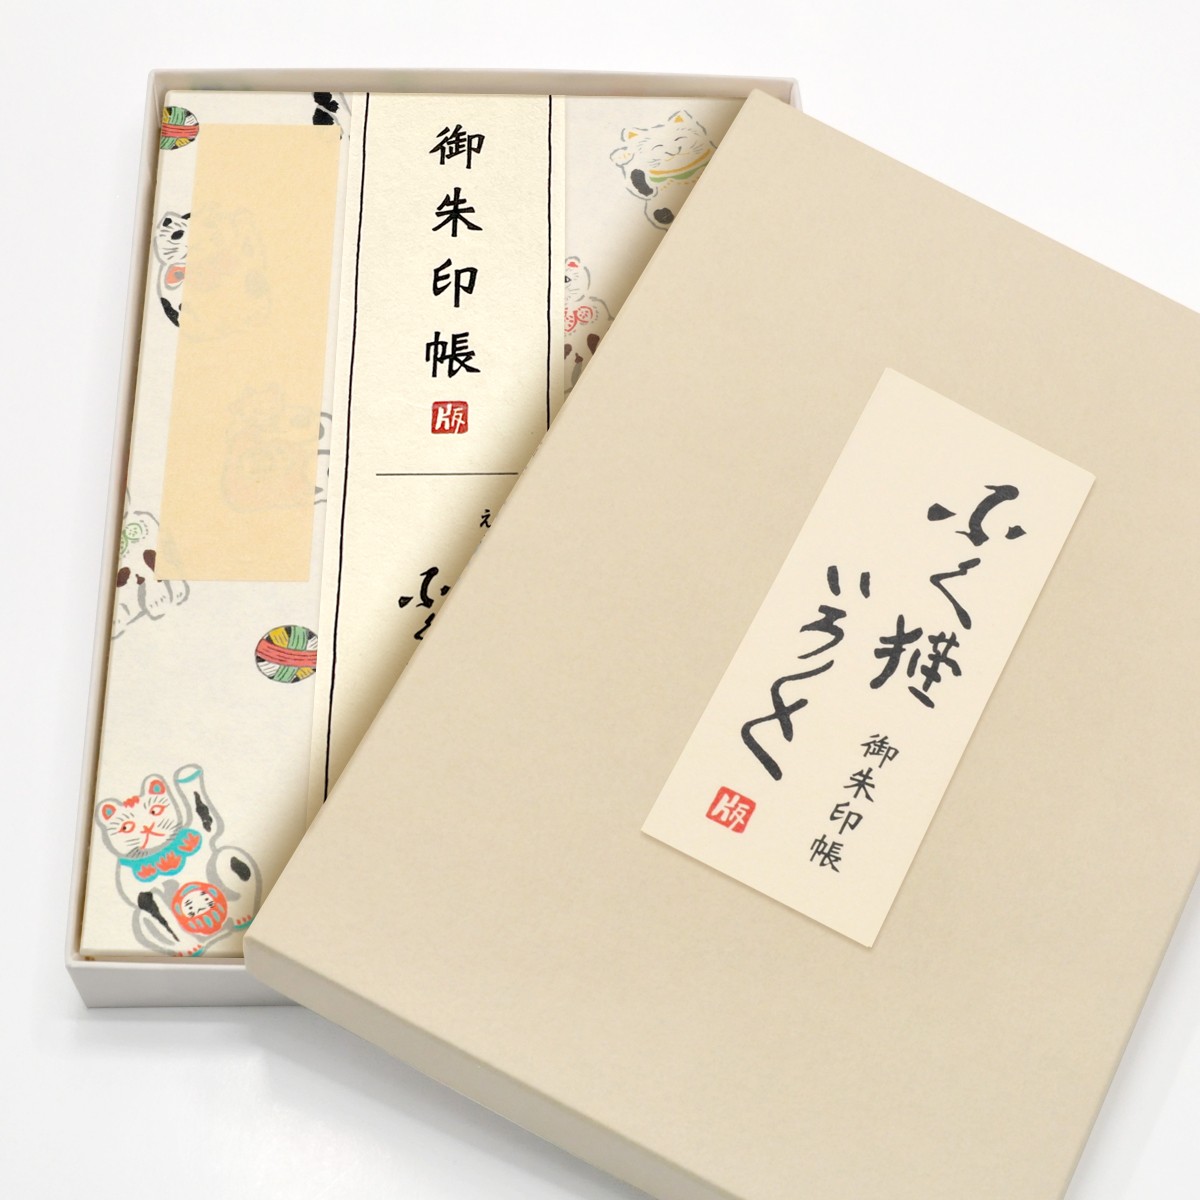 御朱印帳
版
え
ふく
ふく猫
いろ〳〵
御朱印帳
版